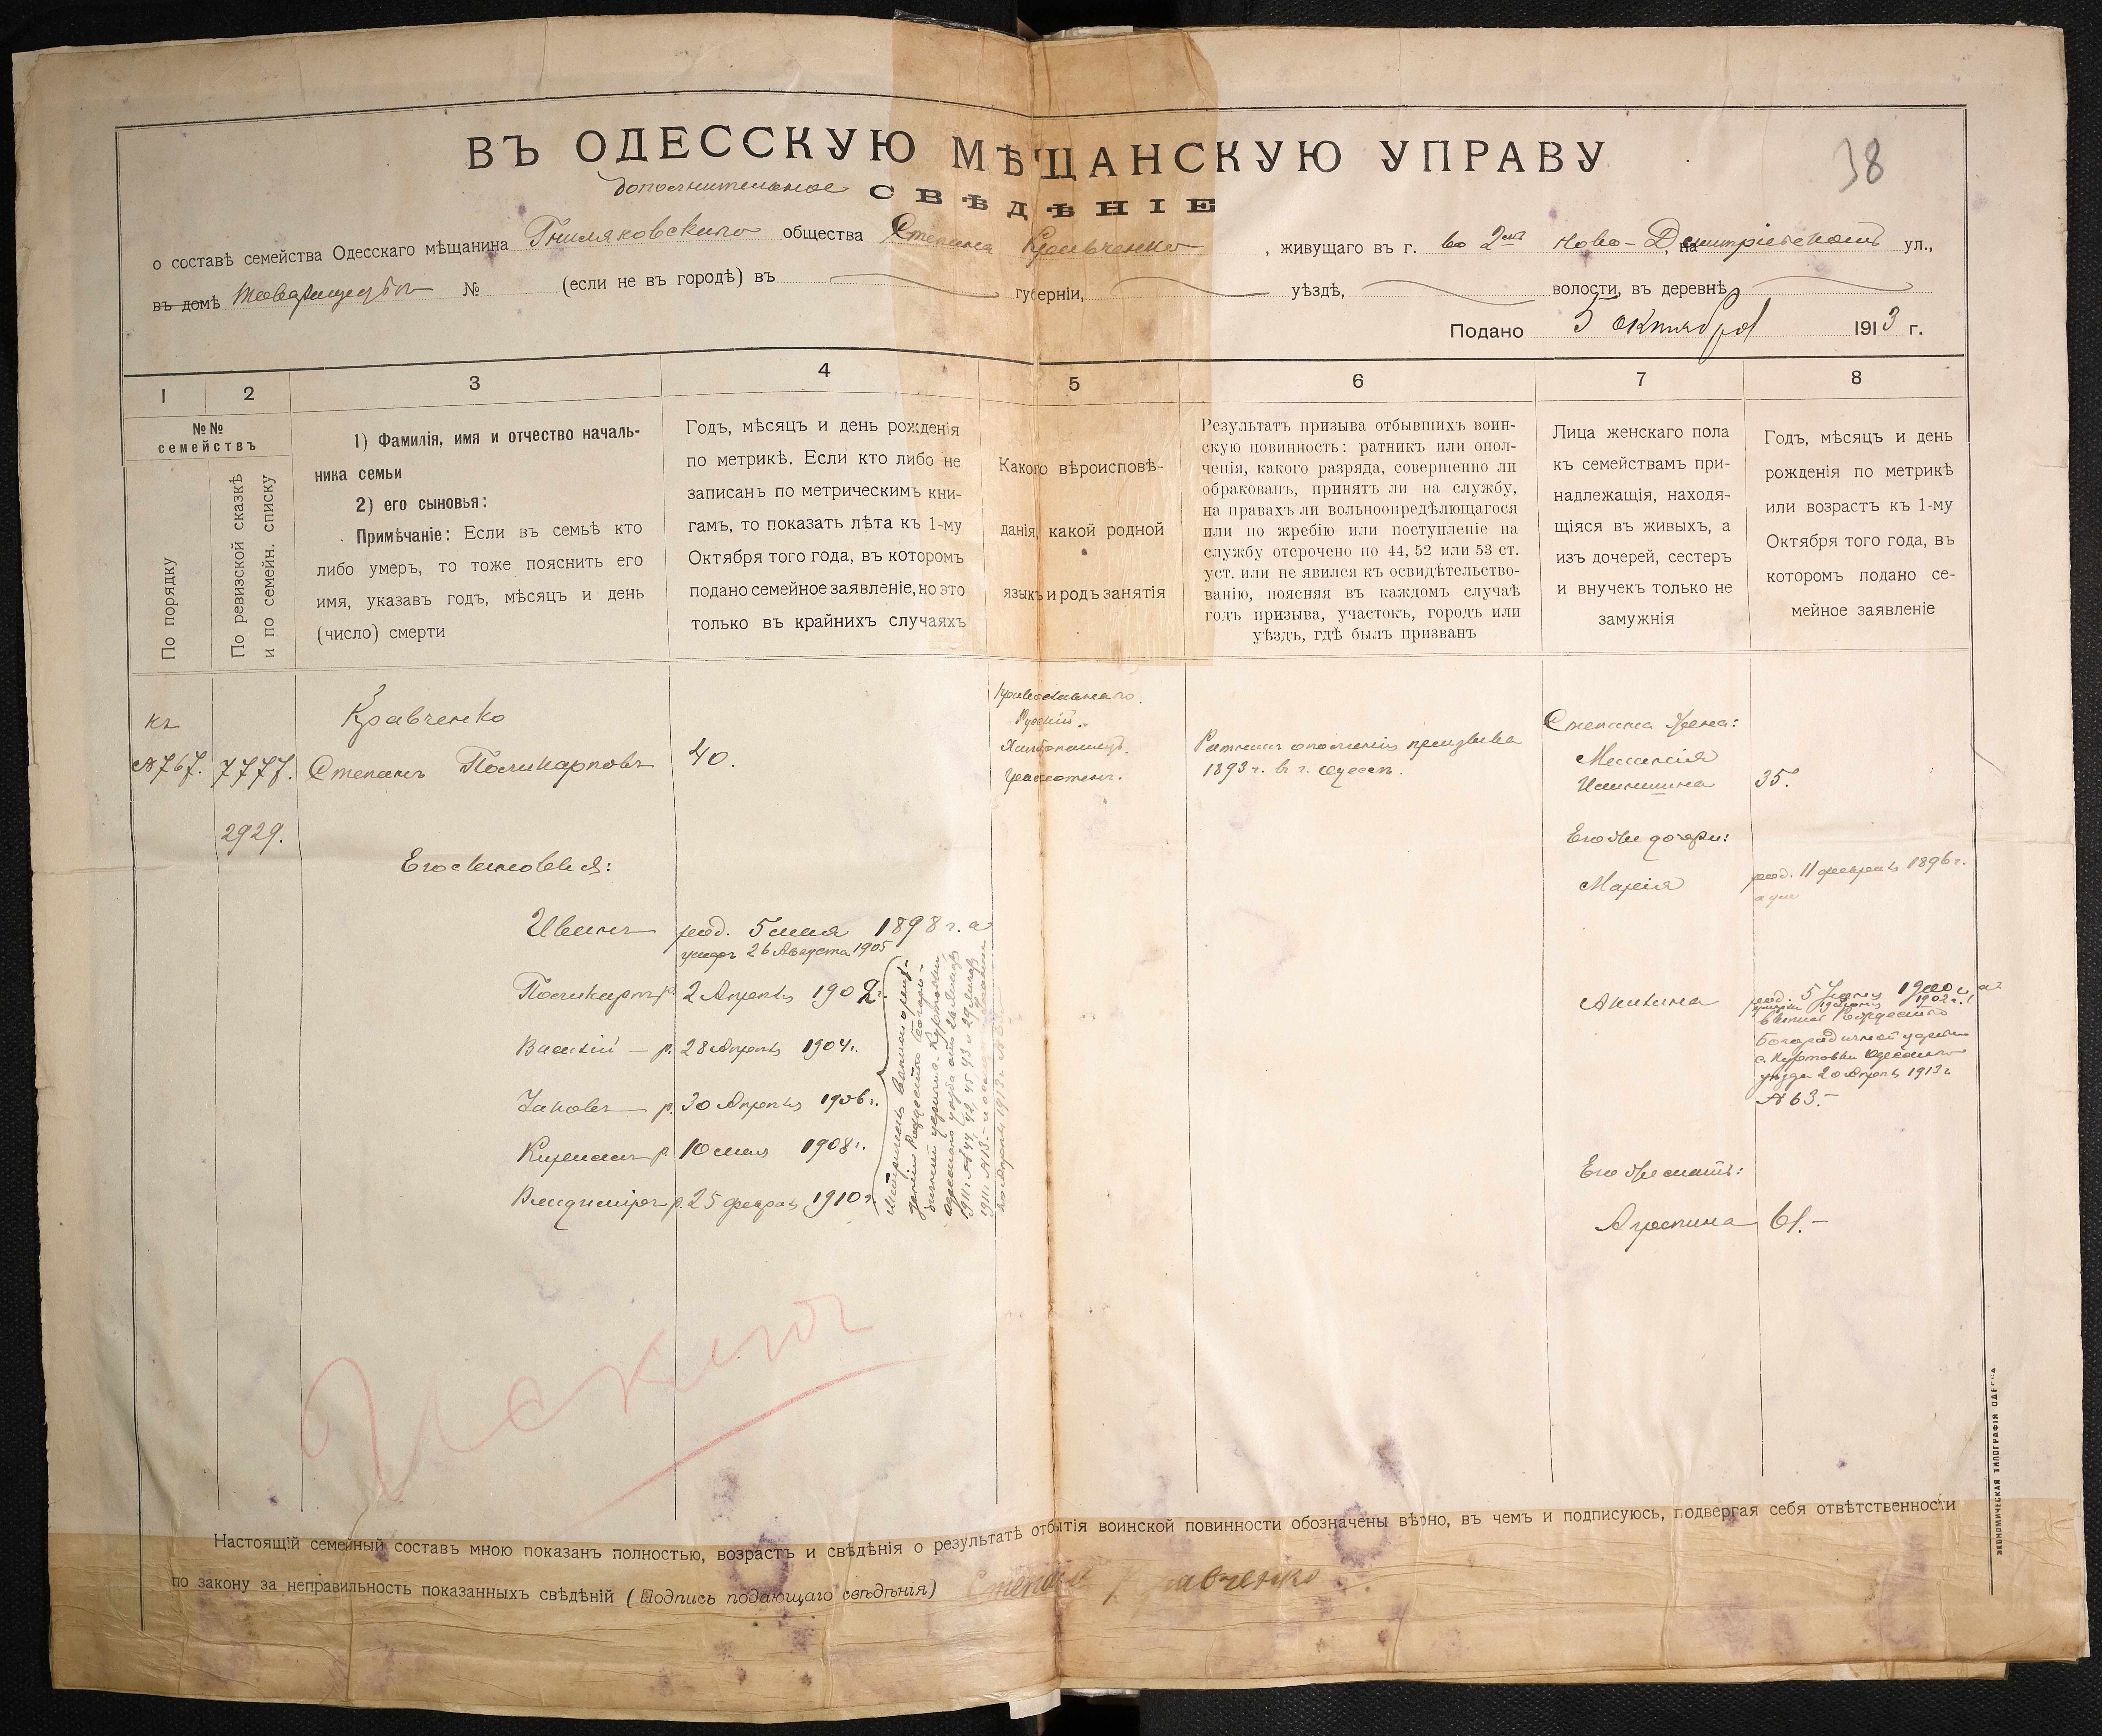 38
ВЪ ОДЕССКУЮ МѢЩАНСКУЮ УПРАВУ
дополнительное СВѢДѢНІЕ
о составѣ семейства Одесскаго мѣщанина Гниляковскаго общества Степана Кравченко, живущаго въ г. во 2мъ Ново-Дмитріевскомъ, на ул.,
въ домѣ Товариществѣ № (если не въ городѣ) въ губерніи, уѣздѣ, волости, въ деревнѣ
Подано 5 октября 1913 г.
1 2 3 4 5 6 7 8
№№ семействъ
По порядку
По ревизской сказкѣ
и по семейн. списку
1) Фамилія, имя и отчество началь-
ника семьи
2) его сыновья:
Примѣчаніе: Если въ семьѣ кто
либо умеръ, то тоже пояснить его
имя, указавъ годъ, мѣсяцъ и день
(число) смерти
Годъ, мѣсяцъ и день рожденія
по метрикѣ. Если кто либо не
записанъ по метрическимъ кни-
гамъ, то показать лѣта къ 1-му
Октября того года, въ которомъ
подано семейное заявленіе, но это
только въ крайнихъ случаяхъ
Какого вѣроисповѣ-
данія, какой родной
языкъ и родъ занятія
Результатъ призыва отбывшихъ воин-
скую повинность: ратникъ или опол-
ченія, какого разряда, совершенно ли
обракованъ, принятъ ли на службу,
на правахъ ли вольноопредѣляющагося
или по жребію или поступленіе на
службу отсрочено по 44, 52 или 53 ст.
уст. или не явился къ освидѣтельство-
ванію, поясняя въ каждомъ случаѣ
годъ призыва, участокъ, городъ или
уѣздъ, гдѣ былъ призванъ
Лица женскаго пола
къ семействамъ при-
надлежащія, находя-
щіяся въ живыхъ, а
изъ дочерей, сестеръ
и внучекъ только не
замужнія
Годъ, мѣсяцъ и день
рожденія по метрикѣ
или возрастъ къ 1-му
Октября того года, въ
которомъ подано се-
мейное заявленіе
къ
№767. 7777.
2929.
Кравченко
Степанъ Поликарповъ 40.
Православнаго.
Русскій.
Хлѣбопашецъ.
Грамотенъ.
Ратникъ ополченія призыва
1893 г. въ г. Одессѣ.
Степана жена:
Меланія
35.
Его сыновья:
Иванъ род. 5 мая 1898 г. а
умеръ 26 Августа 1905
Поликарпъ р. 2 Апрѣля 1902 г.
Василій — р. 28 Апрѣля 1904 г.
Іаковъ р. 30 Апрѣля 1906 г.
Кириллъ р. 10 мая 1908 г.
Владиміръ р. 25 февраля 1910 г.
Его же дочери:
Марія род. 11 февраля 1896 г.
Акилина род. 5 1900 г. а
1902 г.
Рождество
Богородичной церкви
с. Куртовки Одесскаго
уѣзда 20 Апрѣля 1913 г.
№ 63.—
Его же мать:
Агрипина 61.—
Настоящій семейный составъ мною показанъ полностью, возрастъ и свѣдѣнія о результатѣ отбытія воинской повинности обозначены вѣрно, въ чемъ и подписуюсь, подвергая себя отвѣтственности
по закону за неправильность показанныхъ свѣдѣній (Подпись подающаго свѣдѣнія) Степанъ Кравченко
ЭКОНОМИЧЕСКАЯ ТИПОГРАФІЯ ОДЕССА